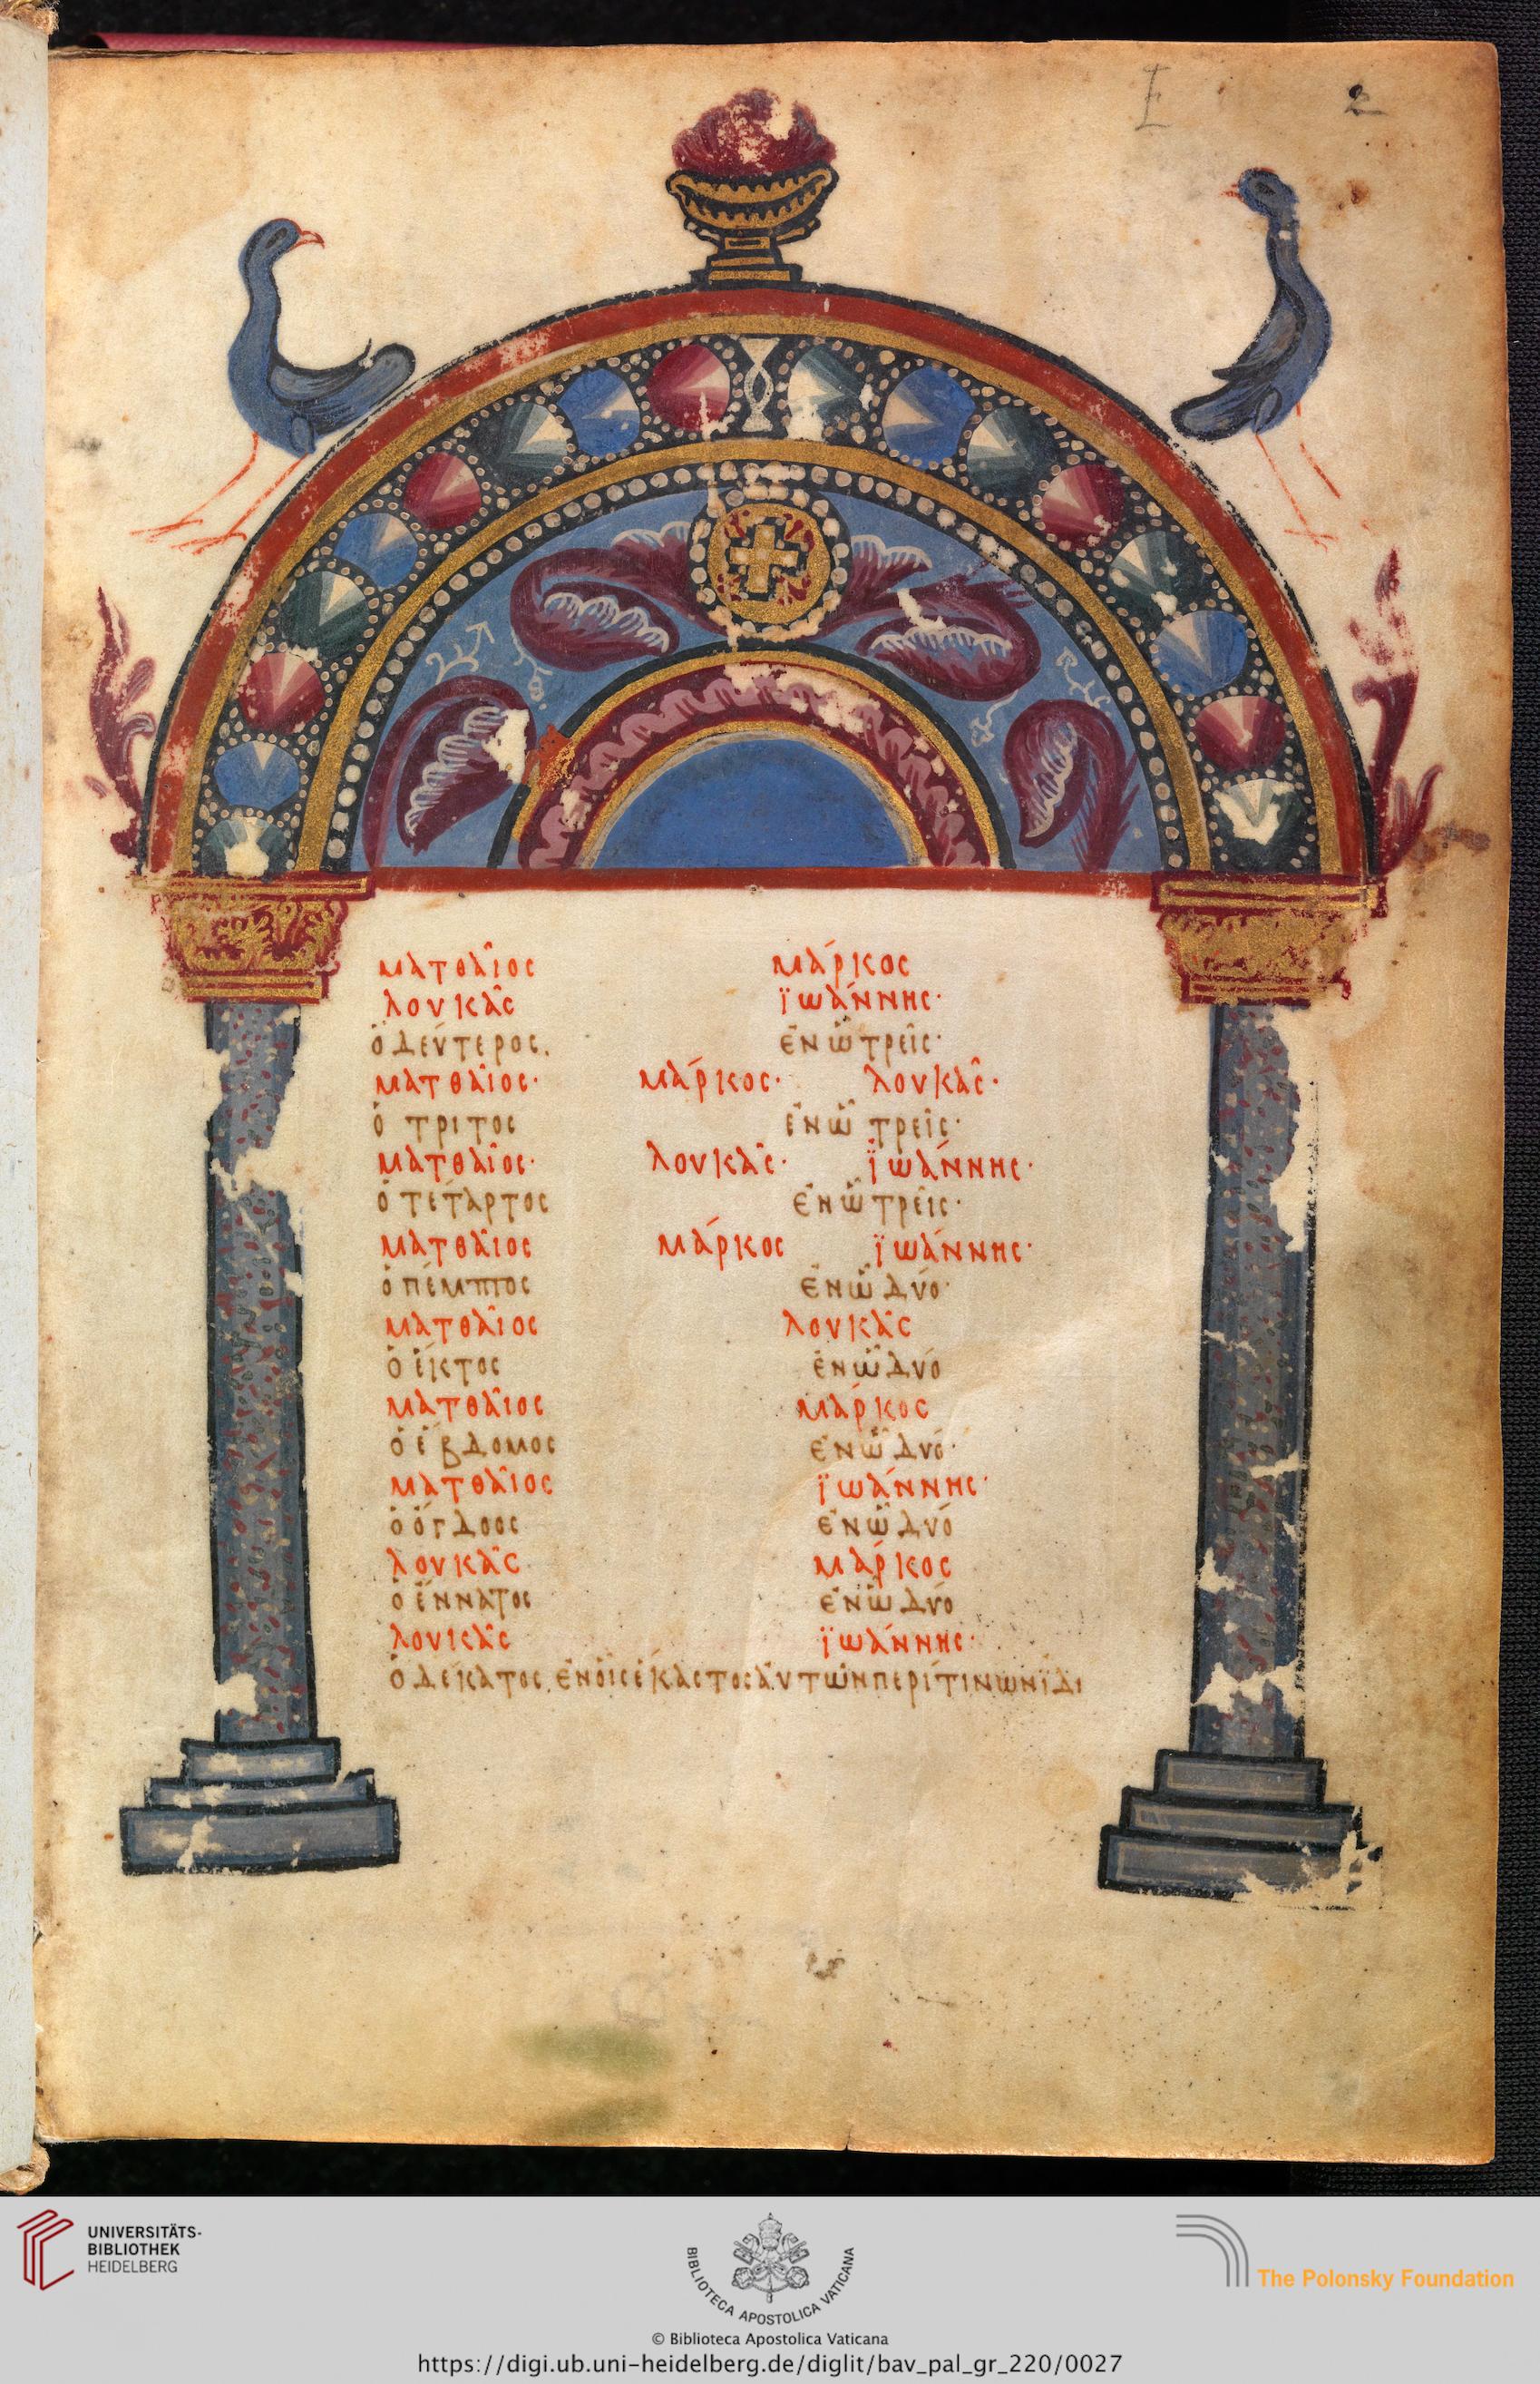 E 2
ματθαῖος μάρκος
λουκᾶς ϊωάννης·
ὁ δεύτερος. ἐν ὧ τρεῖς·
ματθαῖος· μάρκος· λουκᾶς·
ὁ τρίτος ἐν ὧ τρεῖς·
ματθαῖος· λουκᾶς· ϊωάννης·
ὁ τέταρτος ἐν ὧ τρεῖς·
ματθαῖος μάρκος ϊωάννης·
ὁ πέμπτος ἐν ὧ δύο·
ματθαῖος λουκᾶς
ὁ ἕκτος ἐν ὧ δύο
ματθαῖος μάρκος
ὁ ἕβδομος ἐν ὧ δύο·
ματθαῖος ϊωάννης·
ὁ ὄγδοος ἐν ὧ δύο
λουκᾶς μάρκος
ὁ ἔννατος ἐν ὧ δύο
λουκᾶς ϊωάννης·
ὁ δέκατος. ἐν οἷς ἕκαστος ἀυτῶν περί τινων ϊδι
UNIVERSITÄTS-
BIBLIOTHEK
HEIDELBERG
BIBLIOTECA APOSTOLICA VATICANA
The Polonsky Foundation
© Biblioteca Apostolica Vaticana
https://digi.ub.uni-heidelberg.de/diglit/bav_pal_gr_220/0027